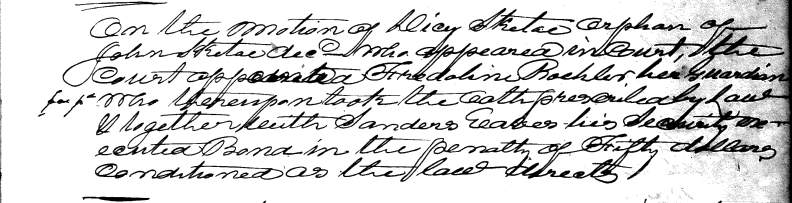 On the motion of Dicy Sketoe Orphan of
John Sketoe decd. who appeared in Court, & the
Court appointed Fredoline Boehler her guardian
who thereupon took the oath prescribed by Law
& together with Sanders Eaves his Security ex-
ecuted Bond in the penalty of Fifty dollars
conditioned as the law directs